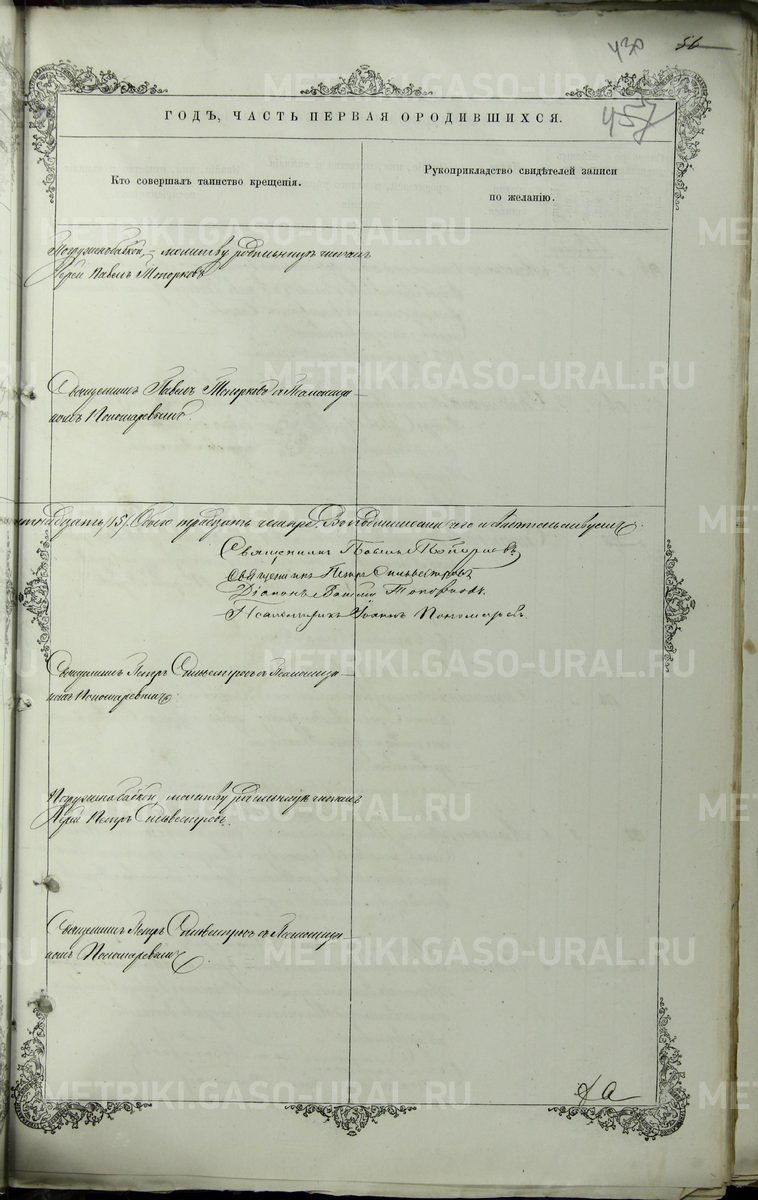 430
56
457
ГОДЪ, ЧАСТЬ ПЕРВАЯ О РОДИВШИХСЯ.
Кто совершалъ таинство крещенія.
Рукоприкладство свидѣтелей записи
по желанію.
молитву родильную читалъ
Іерей Павелъ Топорковъ
Священникъ Павелъ Топорковъ с Псаломщи-
комъ Пономаревымъ.
/15/. Обоего тридцать четыре. Въ томъ
Священникъ Павелъ Топорковъ
Священникъ Петръ Сильвестровъ
Діаконъ Топорковъ.
Псаломщикъ Іоаннъ Пономаревъ.
Священникъ Петръ Сильвестровъ с Псаломщи-
комъ Пономаревымъ.
молитву родильную читалъ
Іерей Петръ Сильвестровъ.
Священникъ Петръ Сильвестровъ с Псаломщи-
комъ Пономаревымъ.
METRIKI.GASO-URAL.RU